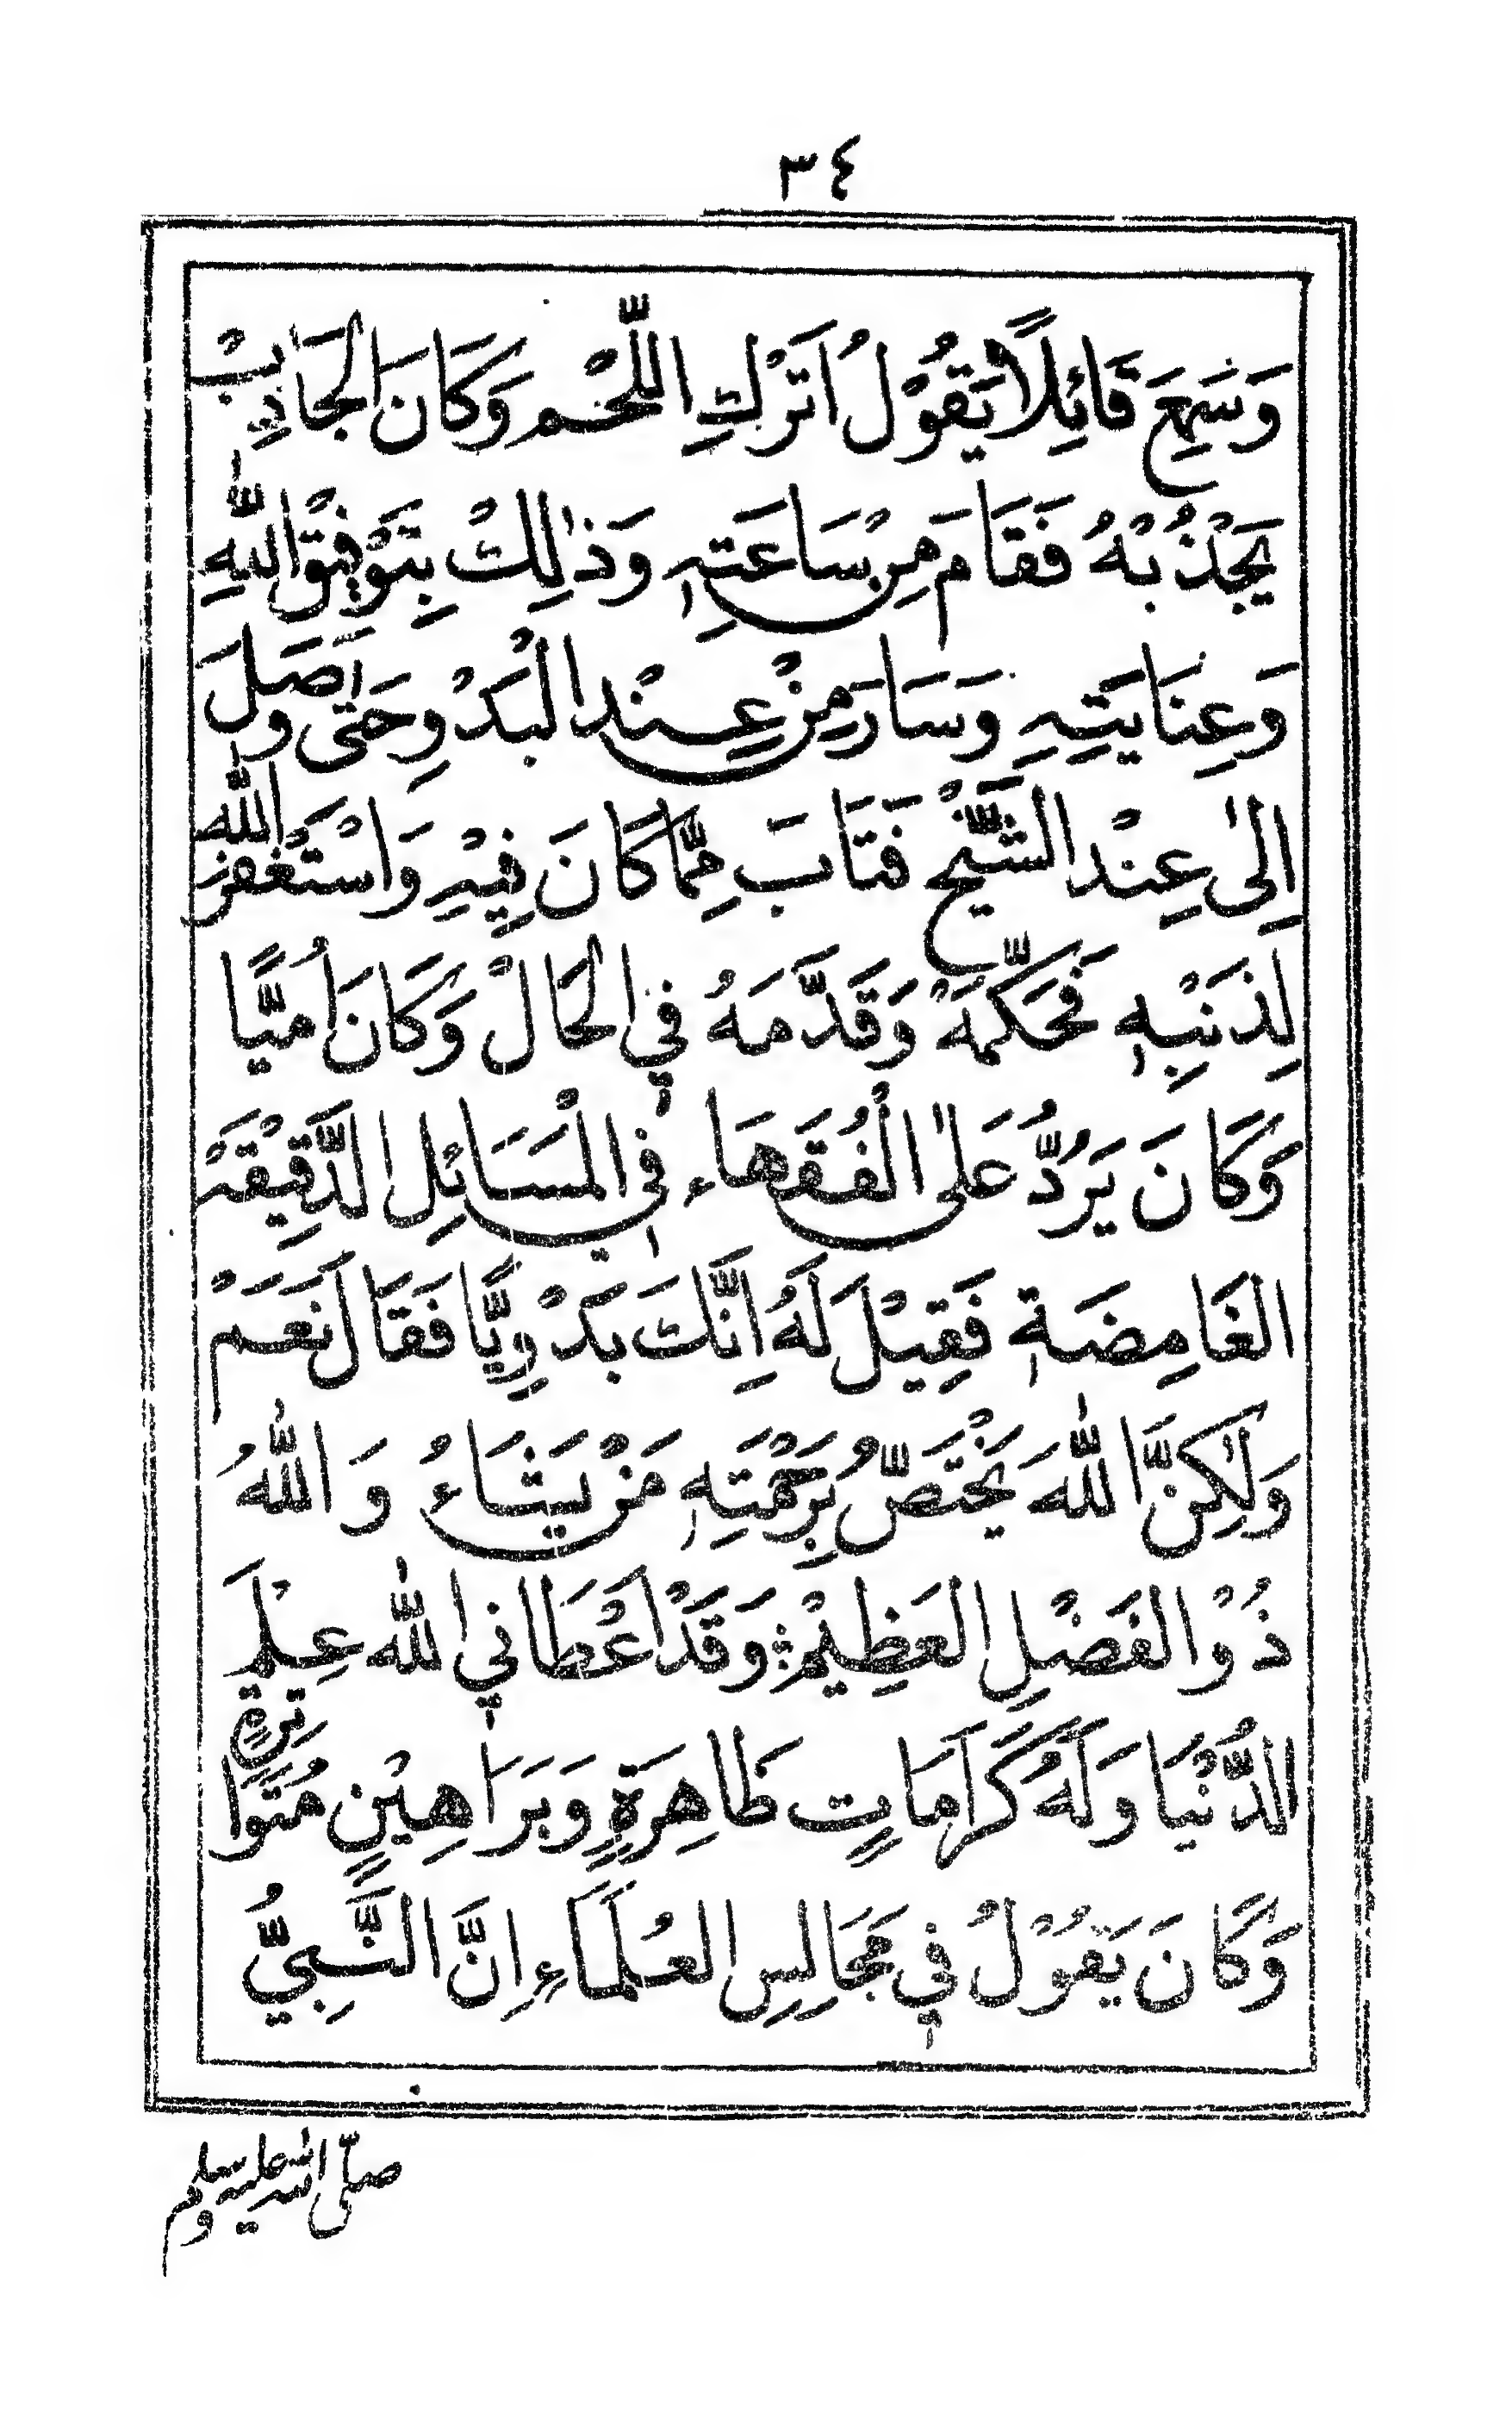 ٣٤
وَسَمِعَ قَائِلاً يَقُوْلُ اُتْرُكِ اللَّحْمَ وَكَانَ الْجَاذِبْ
يَجْذُبْهُ فَقَامَ مِنْ سَاعَتِهِ وَذٰلِكْ بِتَوْفِيْقِ اللّٰهِ
وَعِنَايَتِهِ وَسَارَ مِنْ عِنْدِ الْبَدْوِ حَتَّى وَصَلَ
اِلٰى عِنْدِ الشَّيْخْ فَتَابَ مِمَّا كَانَ فِيْهِ وَاسْتَغْفَرَ اللّٰهَ
لِذَنْبِهِ فَحَكَّمَهْ وَقَدَّمَهُ فِي الْحَالْ وَكَانَ اُمِّيًّا
وَكَانَ يَرُدُّ عَلَى الْفُقَهَاءِ فِي الْمَسَائِلِ الدَّقِيْقَهْ
الغَامِضَةِ فَقِيْلَ لَهُ اِنَّكَ بَدْوِيًّا فَقَالَ نَعَمْ
وَلٰكِنَّ اللّٰهَ يَخْتَصُّ بِرَحْمَتِهِ مَنْ يَشَاءُ وَاللّٰهُ
ذُوْا الفَضْلِ العَظِيْمْ وَقَدْ اَعْطَانِي اللّٰه عِلْمَ
الدُّنْيَا وَلَهُ كَرَامَاتٍ ظَاهِرَةٍ وَبَرَاهِيْنٍ مُتَوَاتِرَةٍ
وَكَانَ يَقُوْلُ فِي مَجَالِسِ العُلَمَاءِ اِنَّ النَّبِيَّ
صلّى الله عليه وسلم